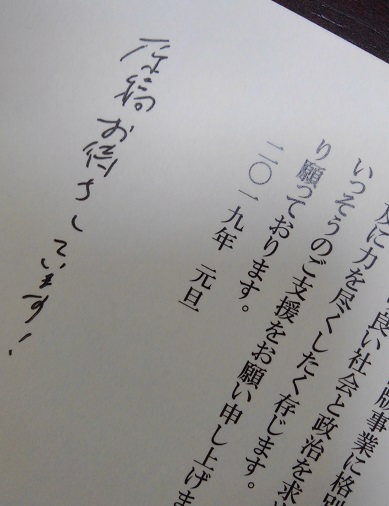 版事業に格別
良い社会と政治を求
及に力を尽くしたく存じます。
いっそうのご支援をお願い申し上げま
り願っております。
二〇一九年 元旦
原稿お待ちしています!